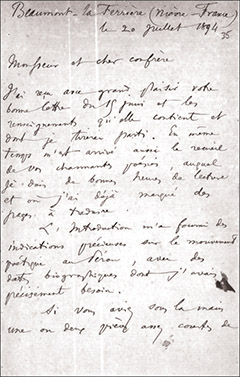 Beaumont-la Ferrière (Nièvre-France)
le 20 juillet 1894
Monsieur et cher confrère
J'ai reçu avec grand plaisir votre
bonne lettre du 15 juin et les
renseignements qu'elle contient et
dont je tirerai parti. En même
temps m'est arrivé aussi le recueil
de vos charmantes poésies, auquel
je dois de bonnes heures de lecture
et où j'ai déjà marqué des
pages à traduire
L'Introduction m'a fourni des
indications précieuses sur le mouvement
poétique au Pérou, avec des
dates biographiques dont j'avais
précisément besoin.
Si vous aviez sous la main
une ou deux pièces assez courtes de